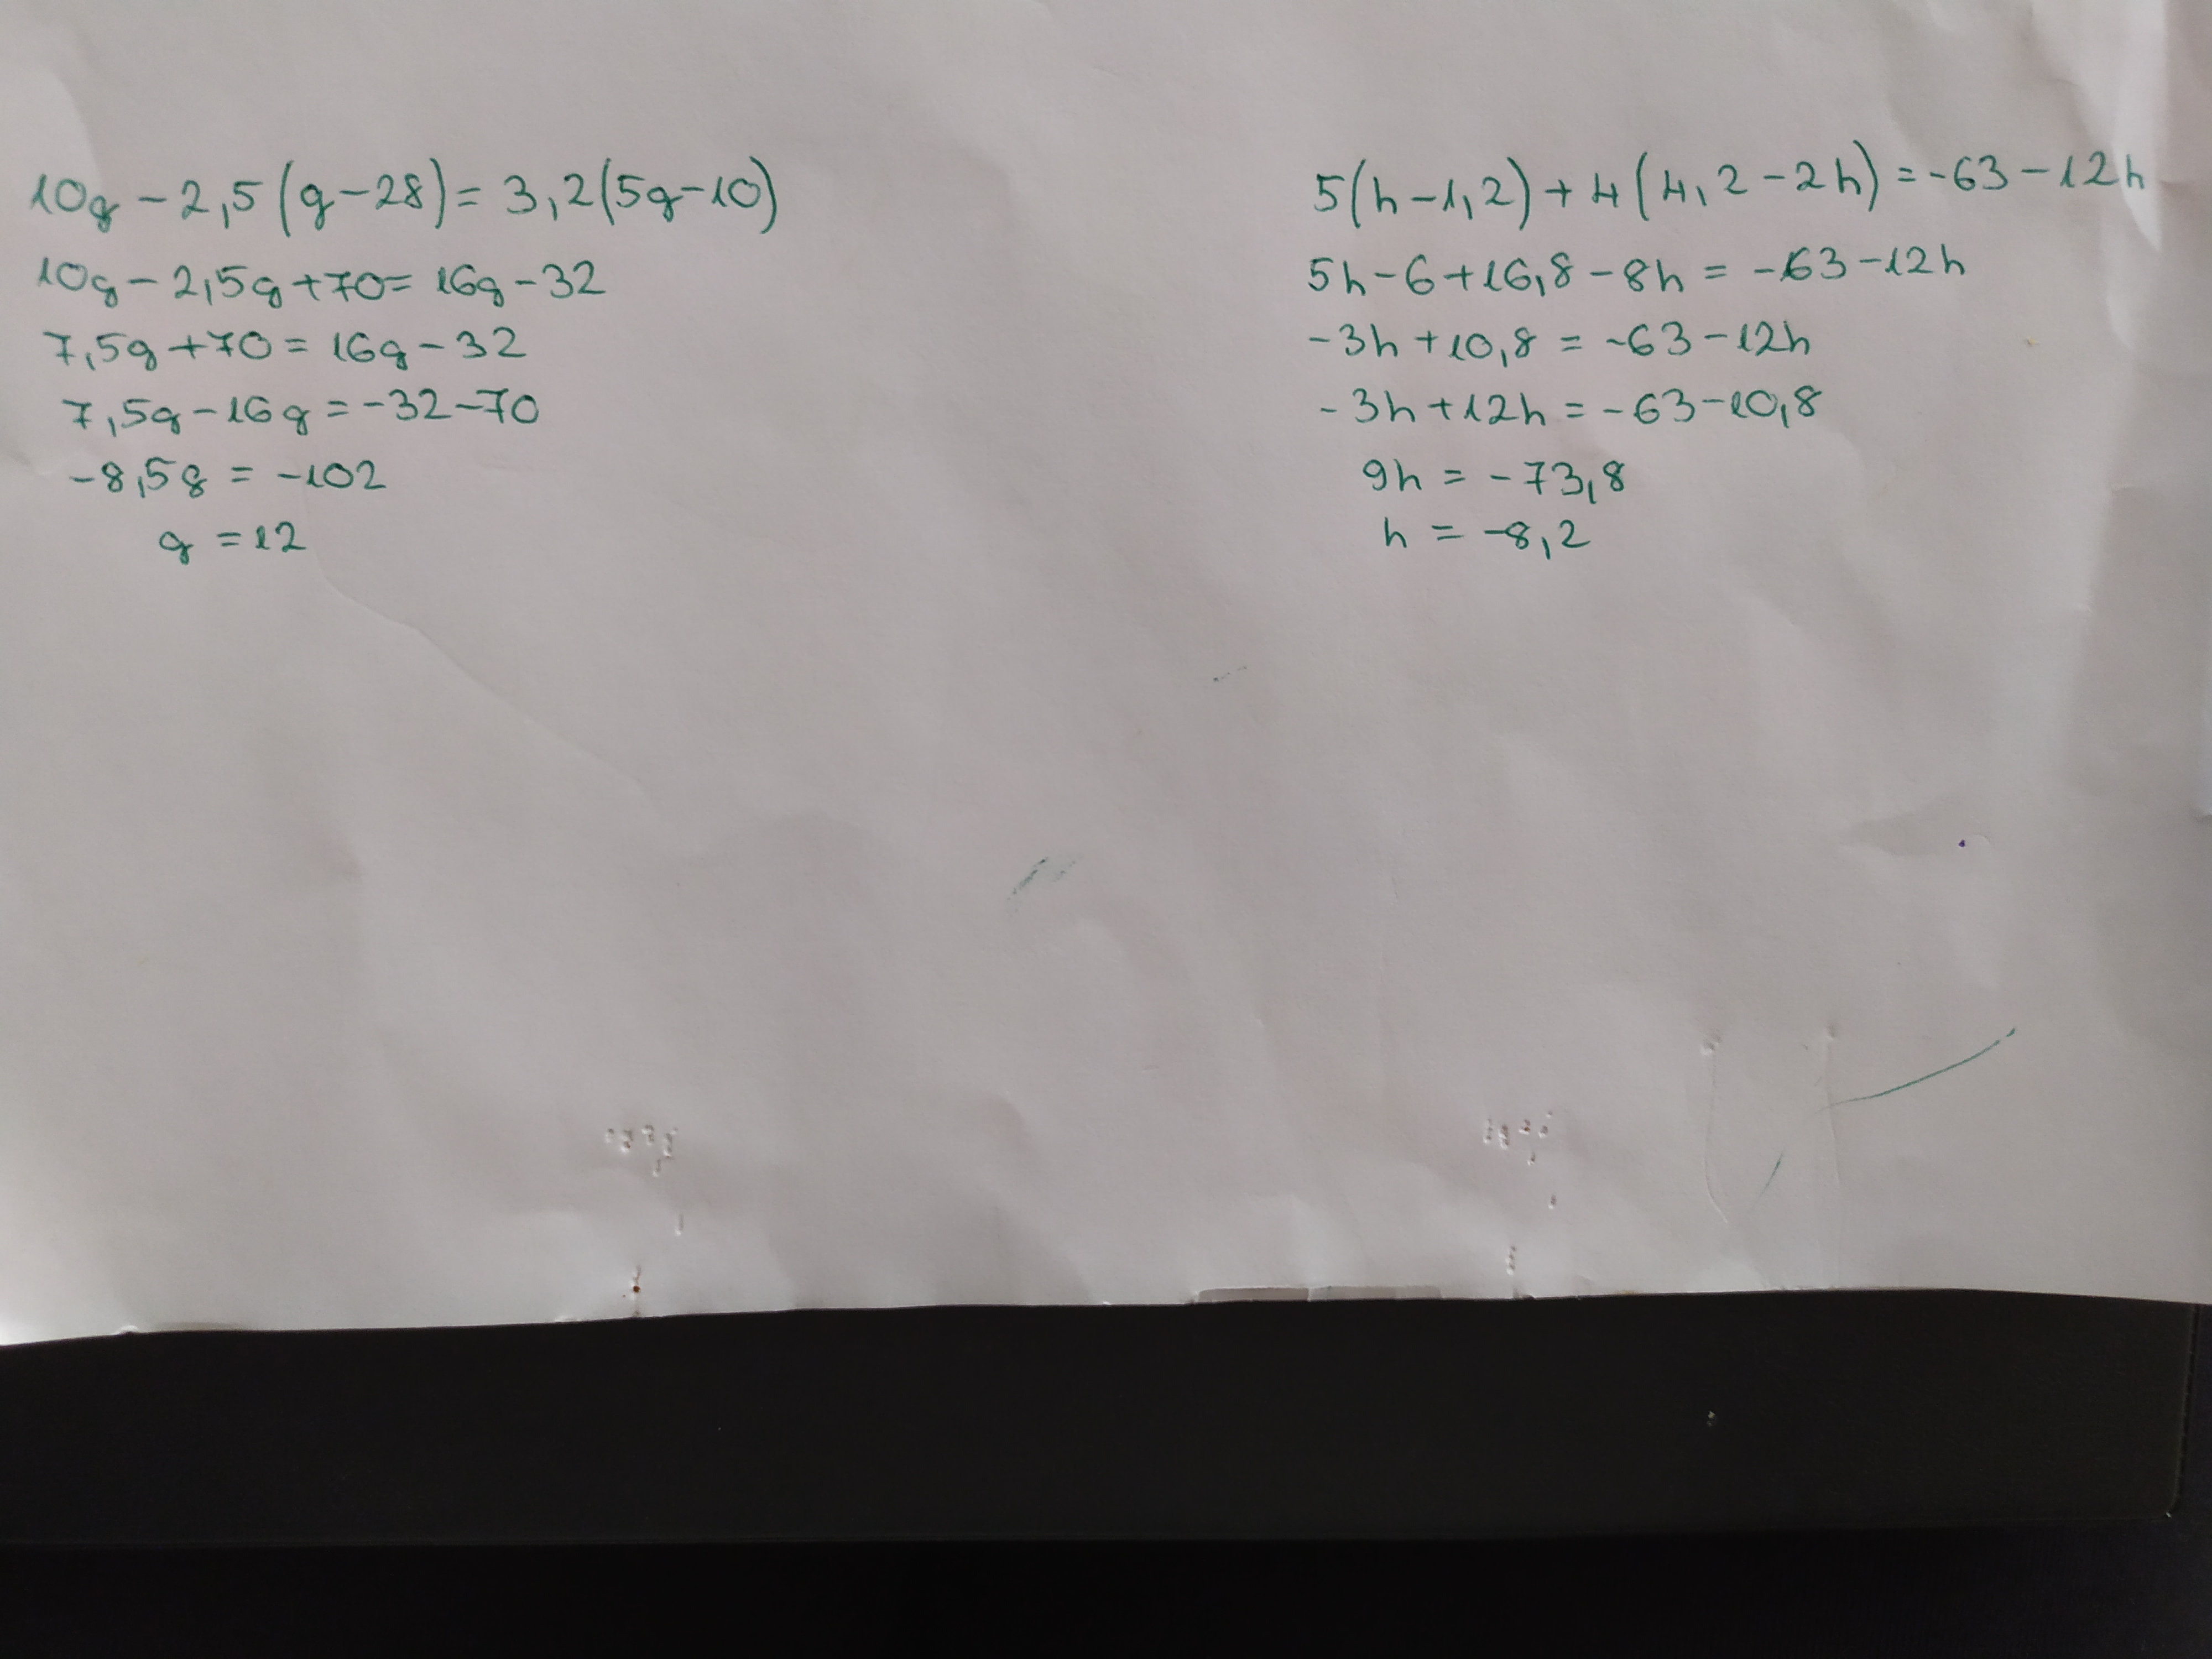 10g - 2,5(g-28) = 3,2(5g-10)
10g - 2,5g + 70 = 16g - 32
7,5g + 70 = 16g - 32
7,5g - 16g = -32 - 70
-8,5g = -102
g = 12
5(h-1,2) + 4(4,2-2h) = -63 - 12h
5h - 6 + 16,8 - 8h = -63 - 12h
-3h + 10,8 = -63 - 12h
-3h + 12h = -63 - 10,8
9h = -73,8
h = -8,2